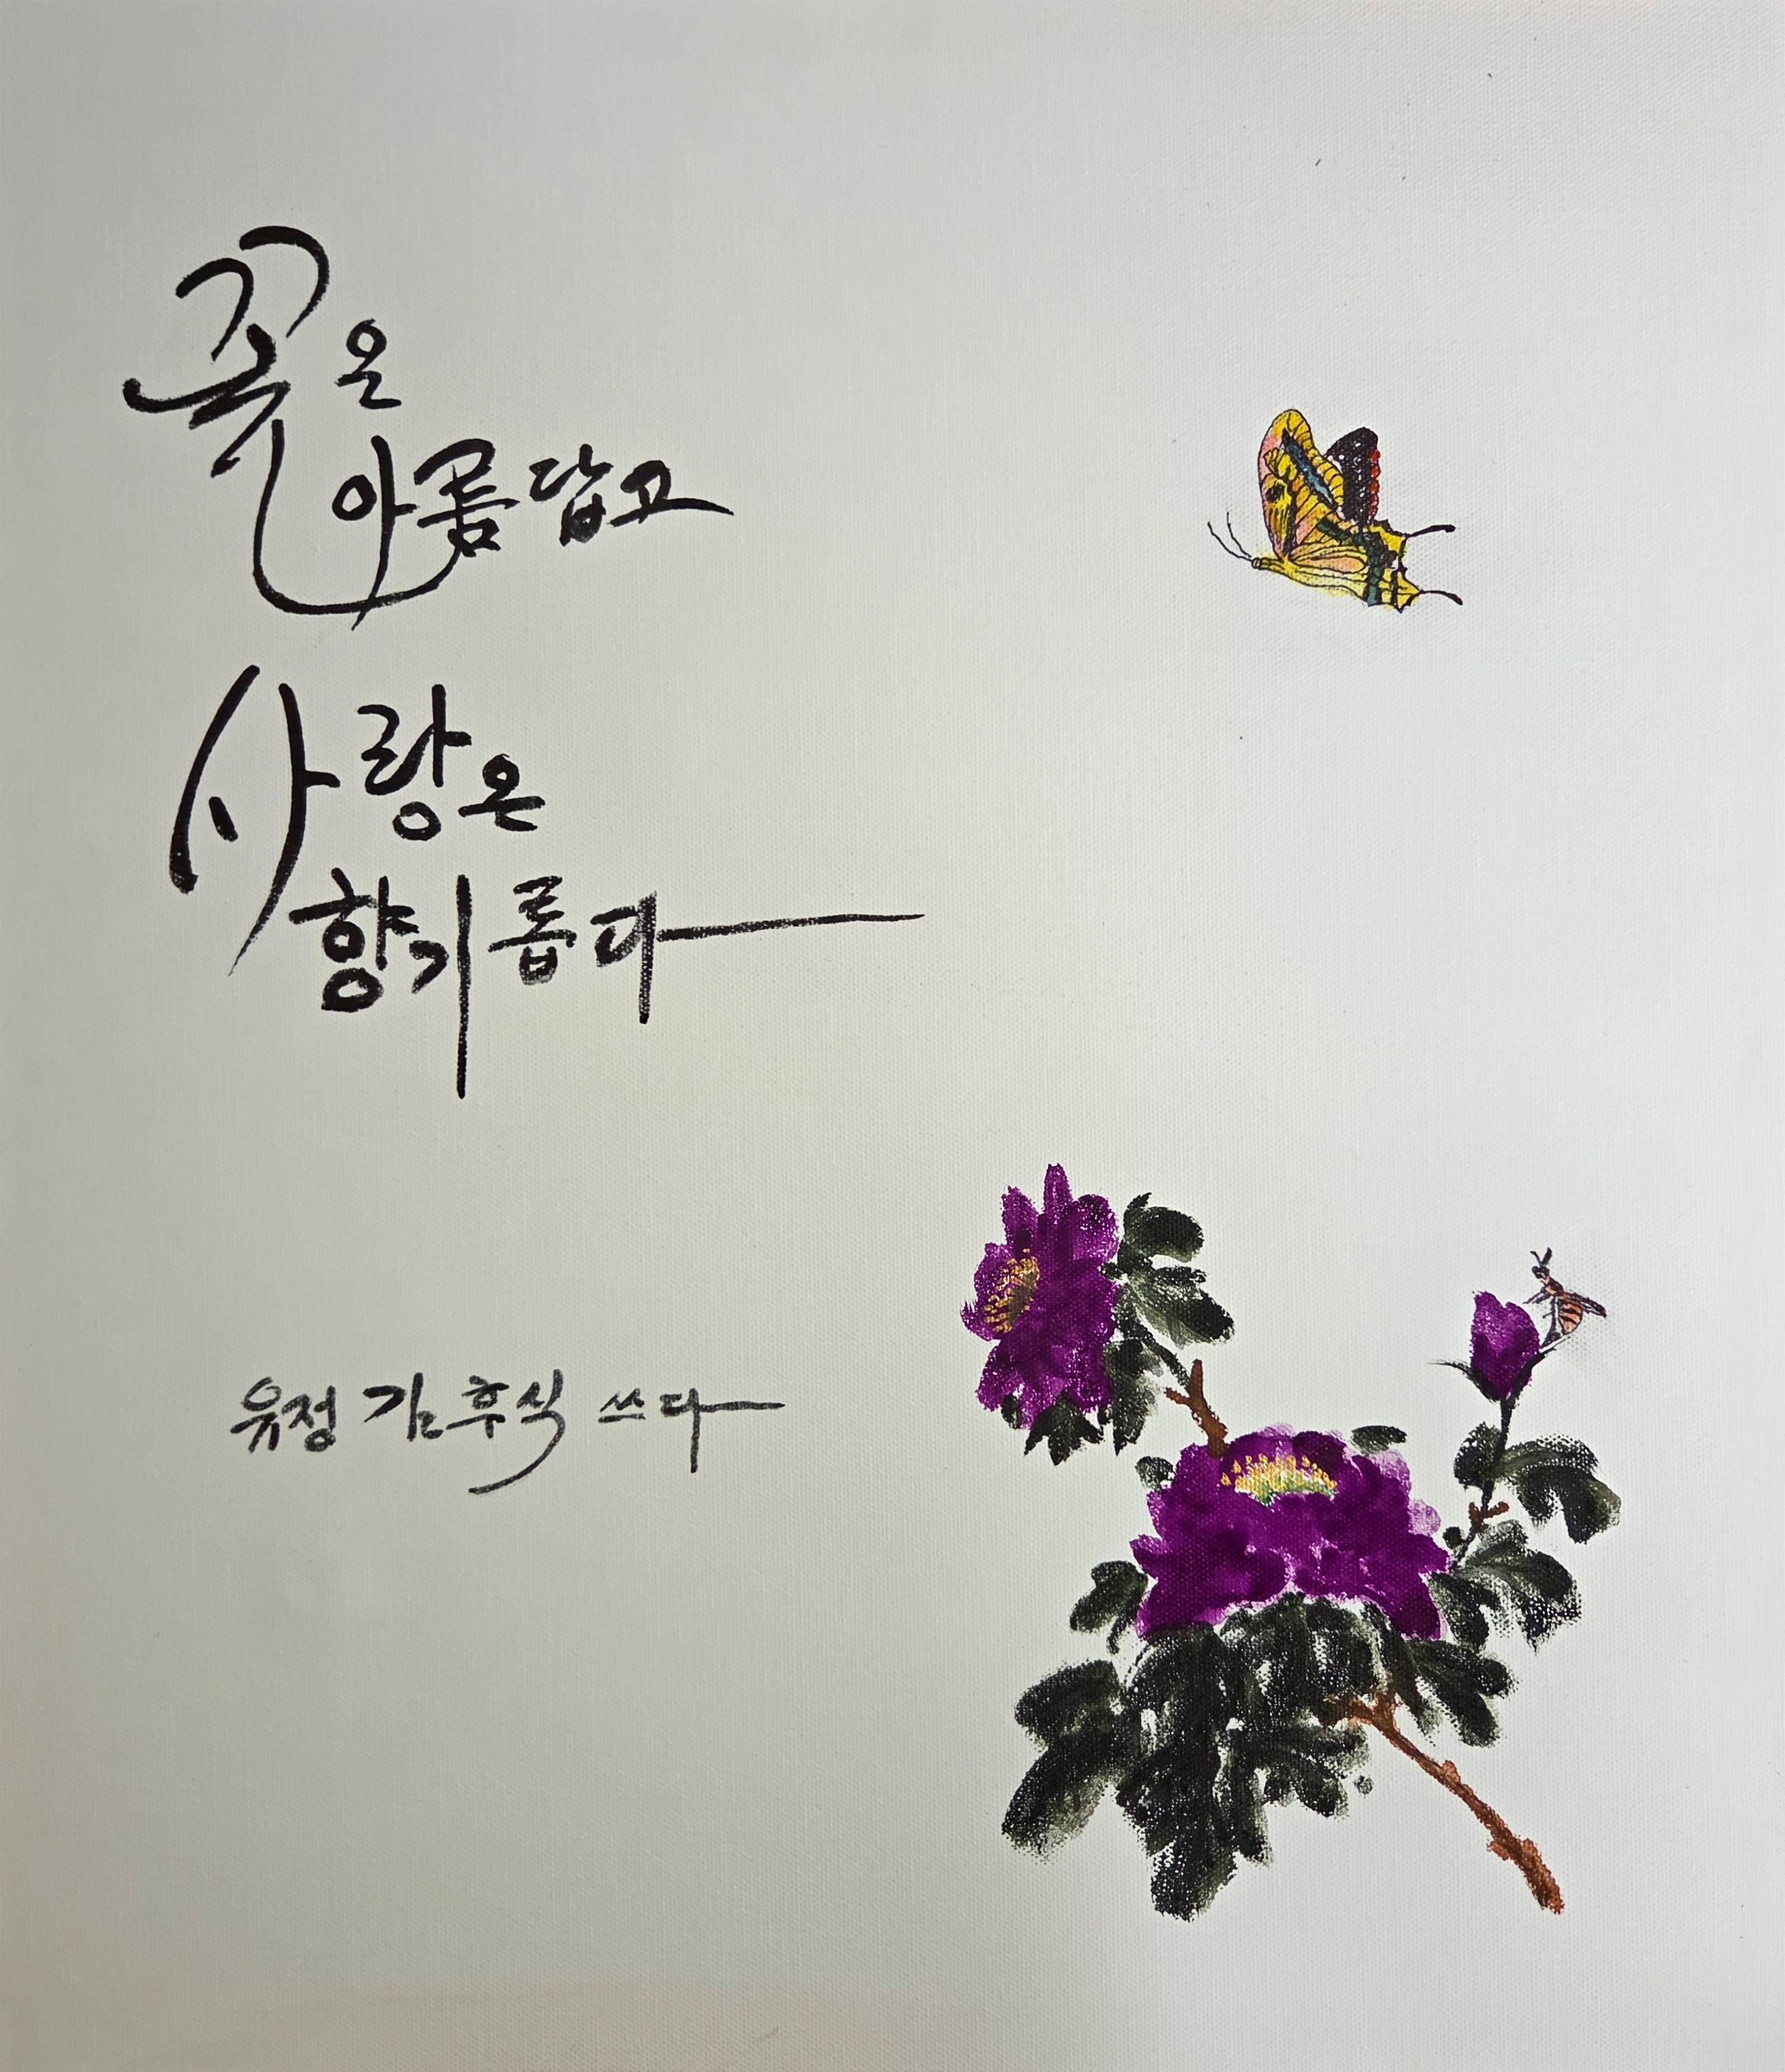 꽃은
아름답고
사랑은
향기롭다
유정 김후식 쓰다